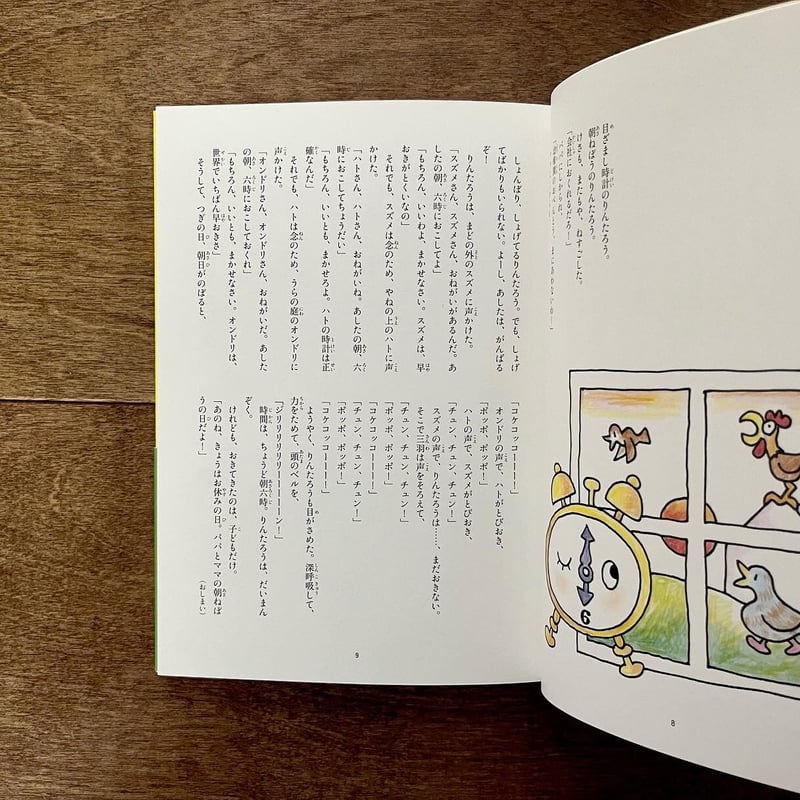 目ざまし時計のりんたろう。
朝ねぼうのりんたろう。
けさも、またもや、ねすごした。
「会社におくれるだろ！」
8
しょんぼり、しょげてるりんたろう。でも、しょげ
てばかりもいられない。よーし、あしたは、がんばる
ぞ！
りんたろうは、まどの外のスズメに声かけた。
「スズメさん、スズメさん、おねがいがあるんだ。あ
したの朝、六時におこしてよ」
「もちろん、いいわよ、まかせなさい。スズメは、早
おきがとくいなの」
それでも、スズメは念のため、やねの上のハトに声
かけた。
「ハトさん、ハトさん、おねがいね。あしたの朝、六
時におこしてちょうだい」
「もちろん、いいとも、まかせろよ。ハトの時計は正
確なんだ」
それでも、ハトは念のため、うらの庭のオンドリに
声かけた。
「オンドリさん、オンドリさん、おねがいだ。あした
の朝、六時におこしておくれ」
「もちろん、いいとも、まかせなさい。オンドリは、
世界でいちばん早おきさ」
そうして、つぎの日、朝日がのぼると、
「コケコッコーーーー！」
オンドリの声で、ハトがとびおき、
「ポッポ、ポッポー！」
ハトの声で、スズメがとびおき、
「チュン、チュン、チュン！」
スズメの声で、りんたろうは……、まだおきない。
そこで三羽は声をそろえて、
「チュン、チュン、チュン！」
「ポッポ、ポッポー！」
「コケコッコーーーー！」
「ポッポ、ポッポー！」
「チュン、チュン、チュン！」
「コケコッコーーーー！」
ようやく、りんたろうも目がさめた。深呼吸して、
力をためて、頭のベルを、
「ジリリリリリリーーーーーン！」
時間は、ちょうど朝六時。りんたろうは、だいまん
ぞく。
けれども、おきてきたのは、子どもだけ。
「あのね、きょうはお休みの日。パパとママの朝ねぼ
うの日だよ！」
（おしまい）
9
6